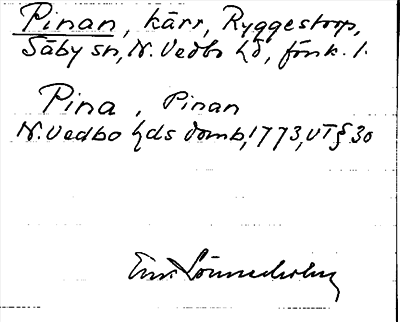 Pinan, kärr, Ryggestorp,
Säby sn, N. Vedbo hd, förk. 1.
Pina, Pinan
N. Vedbo hds domb, 1773, VT § 30